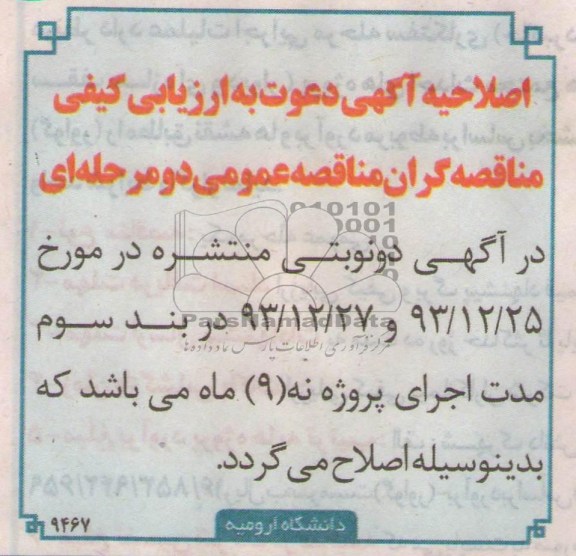 اصلاحیه آگهی دعوت به ارزیابی کیفی
مناقصه گران مناقصه عمومی دو مرحله ای
در آگهی دونوبتی منتشره در مورخ
۹۳/۱۲/۲۵ و ۹۳/۱۲/۲۷ در بند سوم
مدت اجرای پروژه نه(۹) ماه می باشد که
بدینوسیله اصلاح می گردد.
دانشگاه ارومیه
۹۴۶۷
ParsNamadData
مرکز فرآوری اطلاعات پارس نماد داده ها